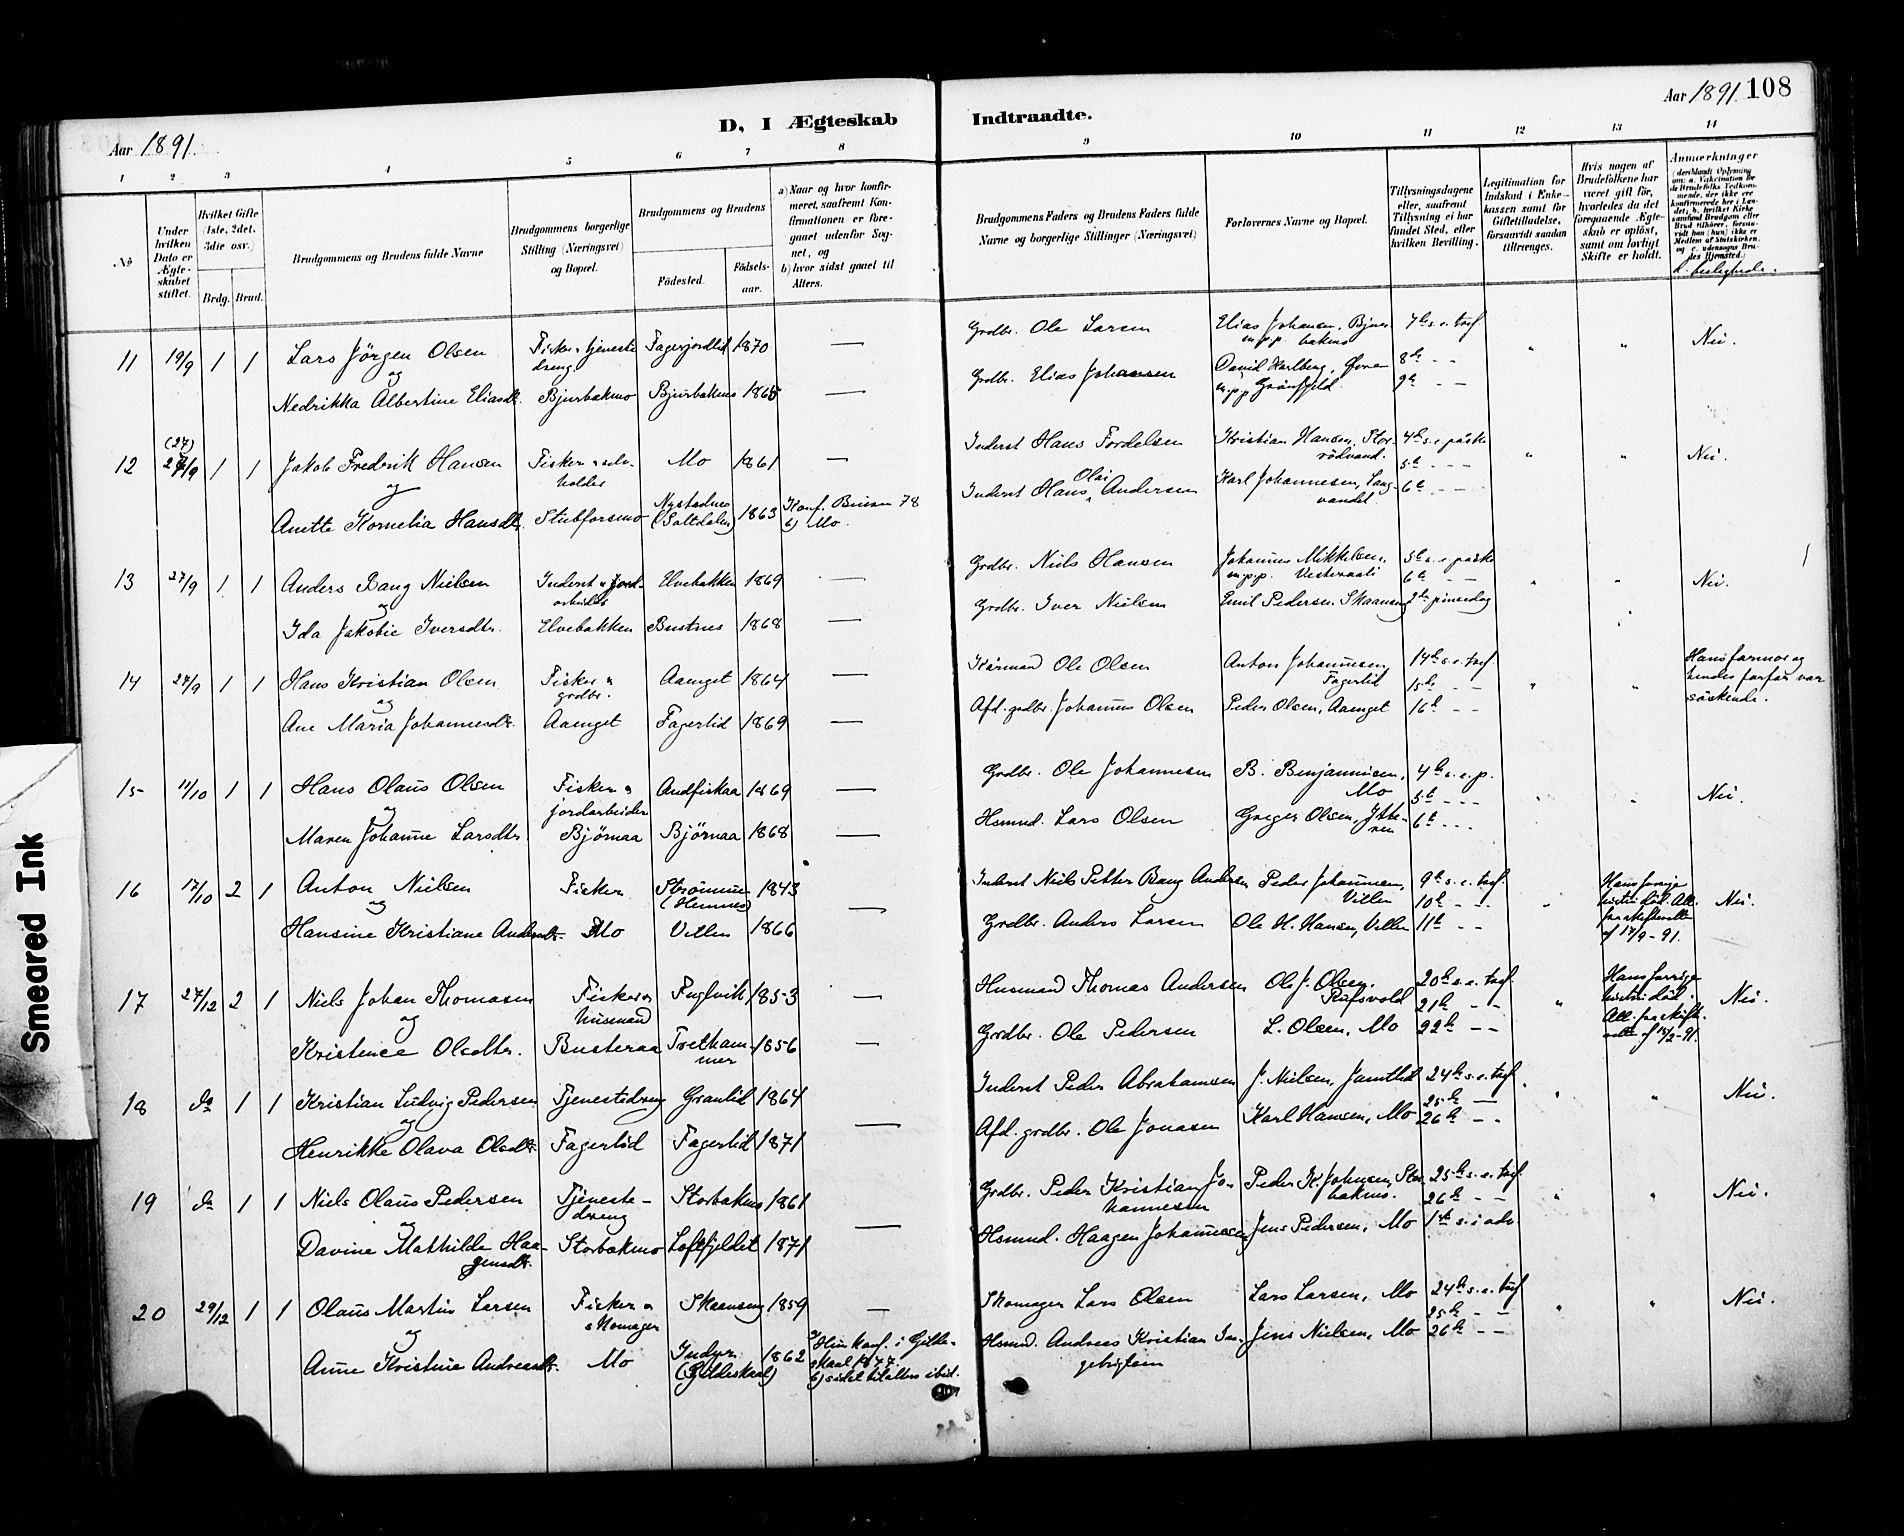 Aar 1891.
D. I Ægteskab Indtraadte.
Aar 1891. 108
1 2 3 4 5 6 7 8 9 10 11 12 13 14
No
Under hvilken Dato er Ægteskabet stiftet.
Hvilket Gifte (1ste, 2det, 3die osv.)
Brdg. Brud.
Brudgommens og Brudens fulde Navne
Brudgommens borgerlige Stilling (Næringsvei) og Bopæl.
Brudgommens og Brudens
Födested. Födselsaar.
a) Naar og hvor konfirmeret, saafremt Konfirmationen er foregaaet udenfor Sognet, og
b) hvor sidst gaaet til Alters.
Brudgommens Faders og Brudens Faders fulde Navne og borgerlige Stillinger (Næringsvei)
Forlovernes Navne og Bopæl.
Tillysningsdagene eller, saafremt Tillysning ei har fundet Sted, efter hvilken Bevilling.
Legitimation for Indskud i Enkekassen samt for Giftetilladelse, forsaavidt saadan tiltrænges.
Hvis nogen af Brudefolkene har været gift för, hvorledes da det foregaaende Ægteskab er oplöst, samt om lovligt Skifte er holdt.
Anmerkninger
d. beslægtede.
11 19/9 1 1 Lars Jörgen Olsen Fisker, tjenestedreng Fagerjordlid 1870 — Grdbr. Ole Larsen Elias Johansen, Bjurbakmo m.p.p. 7de s.e. tref " " Nei.
og 8de - -
Nedrikka Albertine Eliasdt. Bjurbakmo Bjurbakmo 1865 — Grdbr. Elias Johansen David Karlberg, Øvre Grönfjeld m.p.p. 9de - -
12 (27) 27/9 1 1 Jakob Frederik Hansen Fisker, selvholder Mo 1861 — Inderst Hans Fordelsen Kristian Hansen, Storrödvand. 4de s.e. påske " " Nei.
og 5te - - -
Anette Kornelia Hansdt. Stubforsmo Nystadnes (Saltdalen) 1863 Konf. Beiarn 78 b) Mo. Inderst Hans Olai Andersen Karl Johannesen, Langvandet 6te - -
13 27/9 1 1 Anders Bang Nielsen Inderst, jordarbeider Elvebakken 1869 — Grdbr. Niels Hansen Johannes Mikkelsen, m.p.p. Vesteraali 5te s.e. påske " " Nei.
og 6te - -
Ida Jakobie Iversdtr. Elvebakken Bustnes 1868 — Grdbr. Iver Nielsen Emil Pedersen, Skaanseng 2den pinsedag
14 27/9 1 1 Hans Kristian Olsen Fisker, grdbr. Aanget 1864 — Kårmand Ole Olsen Anton Johannesen, Fagerlid 14de s.e. tref " " Hans farmor og hendes farfar var söskende.
og 15de - -
Ane Maria Johannesdt. Aanget Fagerlid 1869 — Afd. grdbr. Johannes Olsen Peder Olsen, Aanget 16de - -
15 11/10 1 1 Hans Olaus Olsen Fisker, jordarbeider Andfiskaa 1869 — Grdbr. Ole Johannesen B. Benjaminsen, Mo 4de s.e.p. " " Nei.
og 5te - - -
Maren Johanne Larsdtr. Bjørnaa Bjørnaa 1868 — Hsmnd. Lars Olsen Greger Olsen, Ytteren 6te - - -
16 17/10 2 1 Anton Nielsen Fisker Strömmen (Hemnes) 1843 Inderst Niels Petter Bang Andersen Peder Johannesen, Villen 9de s.e. tref. " Hans forrige hustru död. Att. fra skifteretten af 17/9-91. Nei.
og — 10de - -
Hansine Kristiane Andersdt. Mo Villen 1866 Grdbr. Anders Larsen Ole H. Hansen, Villen 11te - -
17 27/12 2 1 Niels Johan Thomasen Fisker, husmand Fuglvik 1853 — Husmand Thomas Andersen Ole J. Olsen, 20de s.e. tref. " Hans forrige hustru död. Att. fra skifteretten af Nei.
og 21de - -
Kristence Olsdtr. Busteraa Trethammer 1856 — Grdbr. Ole Pedersen L. Olsen, Mo 22de - -
18 do 1 1 Kristian Ludvig Pedersen Tjenestedreng Granlid 1864 Inderst Peder Abrahamsen J. Nielsen, Jamtlid 24de s.e. tref. " " Nei.
og — 25de —
Henrikke Olava Olsdt. Fagerlid Fagerlid 1871 Afd. grdbr. Ole Jonasen Karl Hansen, Mo 26de - -
19 do 1 1 Niels Olaus Pedersen Tjenestedreng Storbakmo 1861 Grdbr. Peder Kristian Johannesen Peder K. Johnsen, Storbakmo. 25de s.e. tref. " " Nei.
og — 26de - -
Davine Mathilde Haagensdt. Storbakmo Loftfjeldet 1871 Hsmnd. Haagen Johannesen Jens Pedersen, Mo 1ste s. i adv.
20 29/12 1 1 Olaus Martin Larsen Fisker, skomager Skaanseng 1859 — Skomager Lars Olsen Lars Larsen, Mo 24de s.e. tref " " Nei.
og 25de - -
Anne Kristine Andreasdt. Mo Indyr (Gildeskaal) 1862 a) Hun konf. i Gildeskaal 1877. b) sidst til alters ibid. Hsmd. Andreas Kristian Ingebrigtsen Jens Nielsen, Mo 26de - -
Smeared Ink